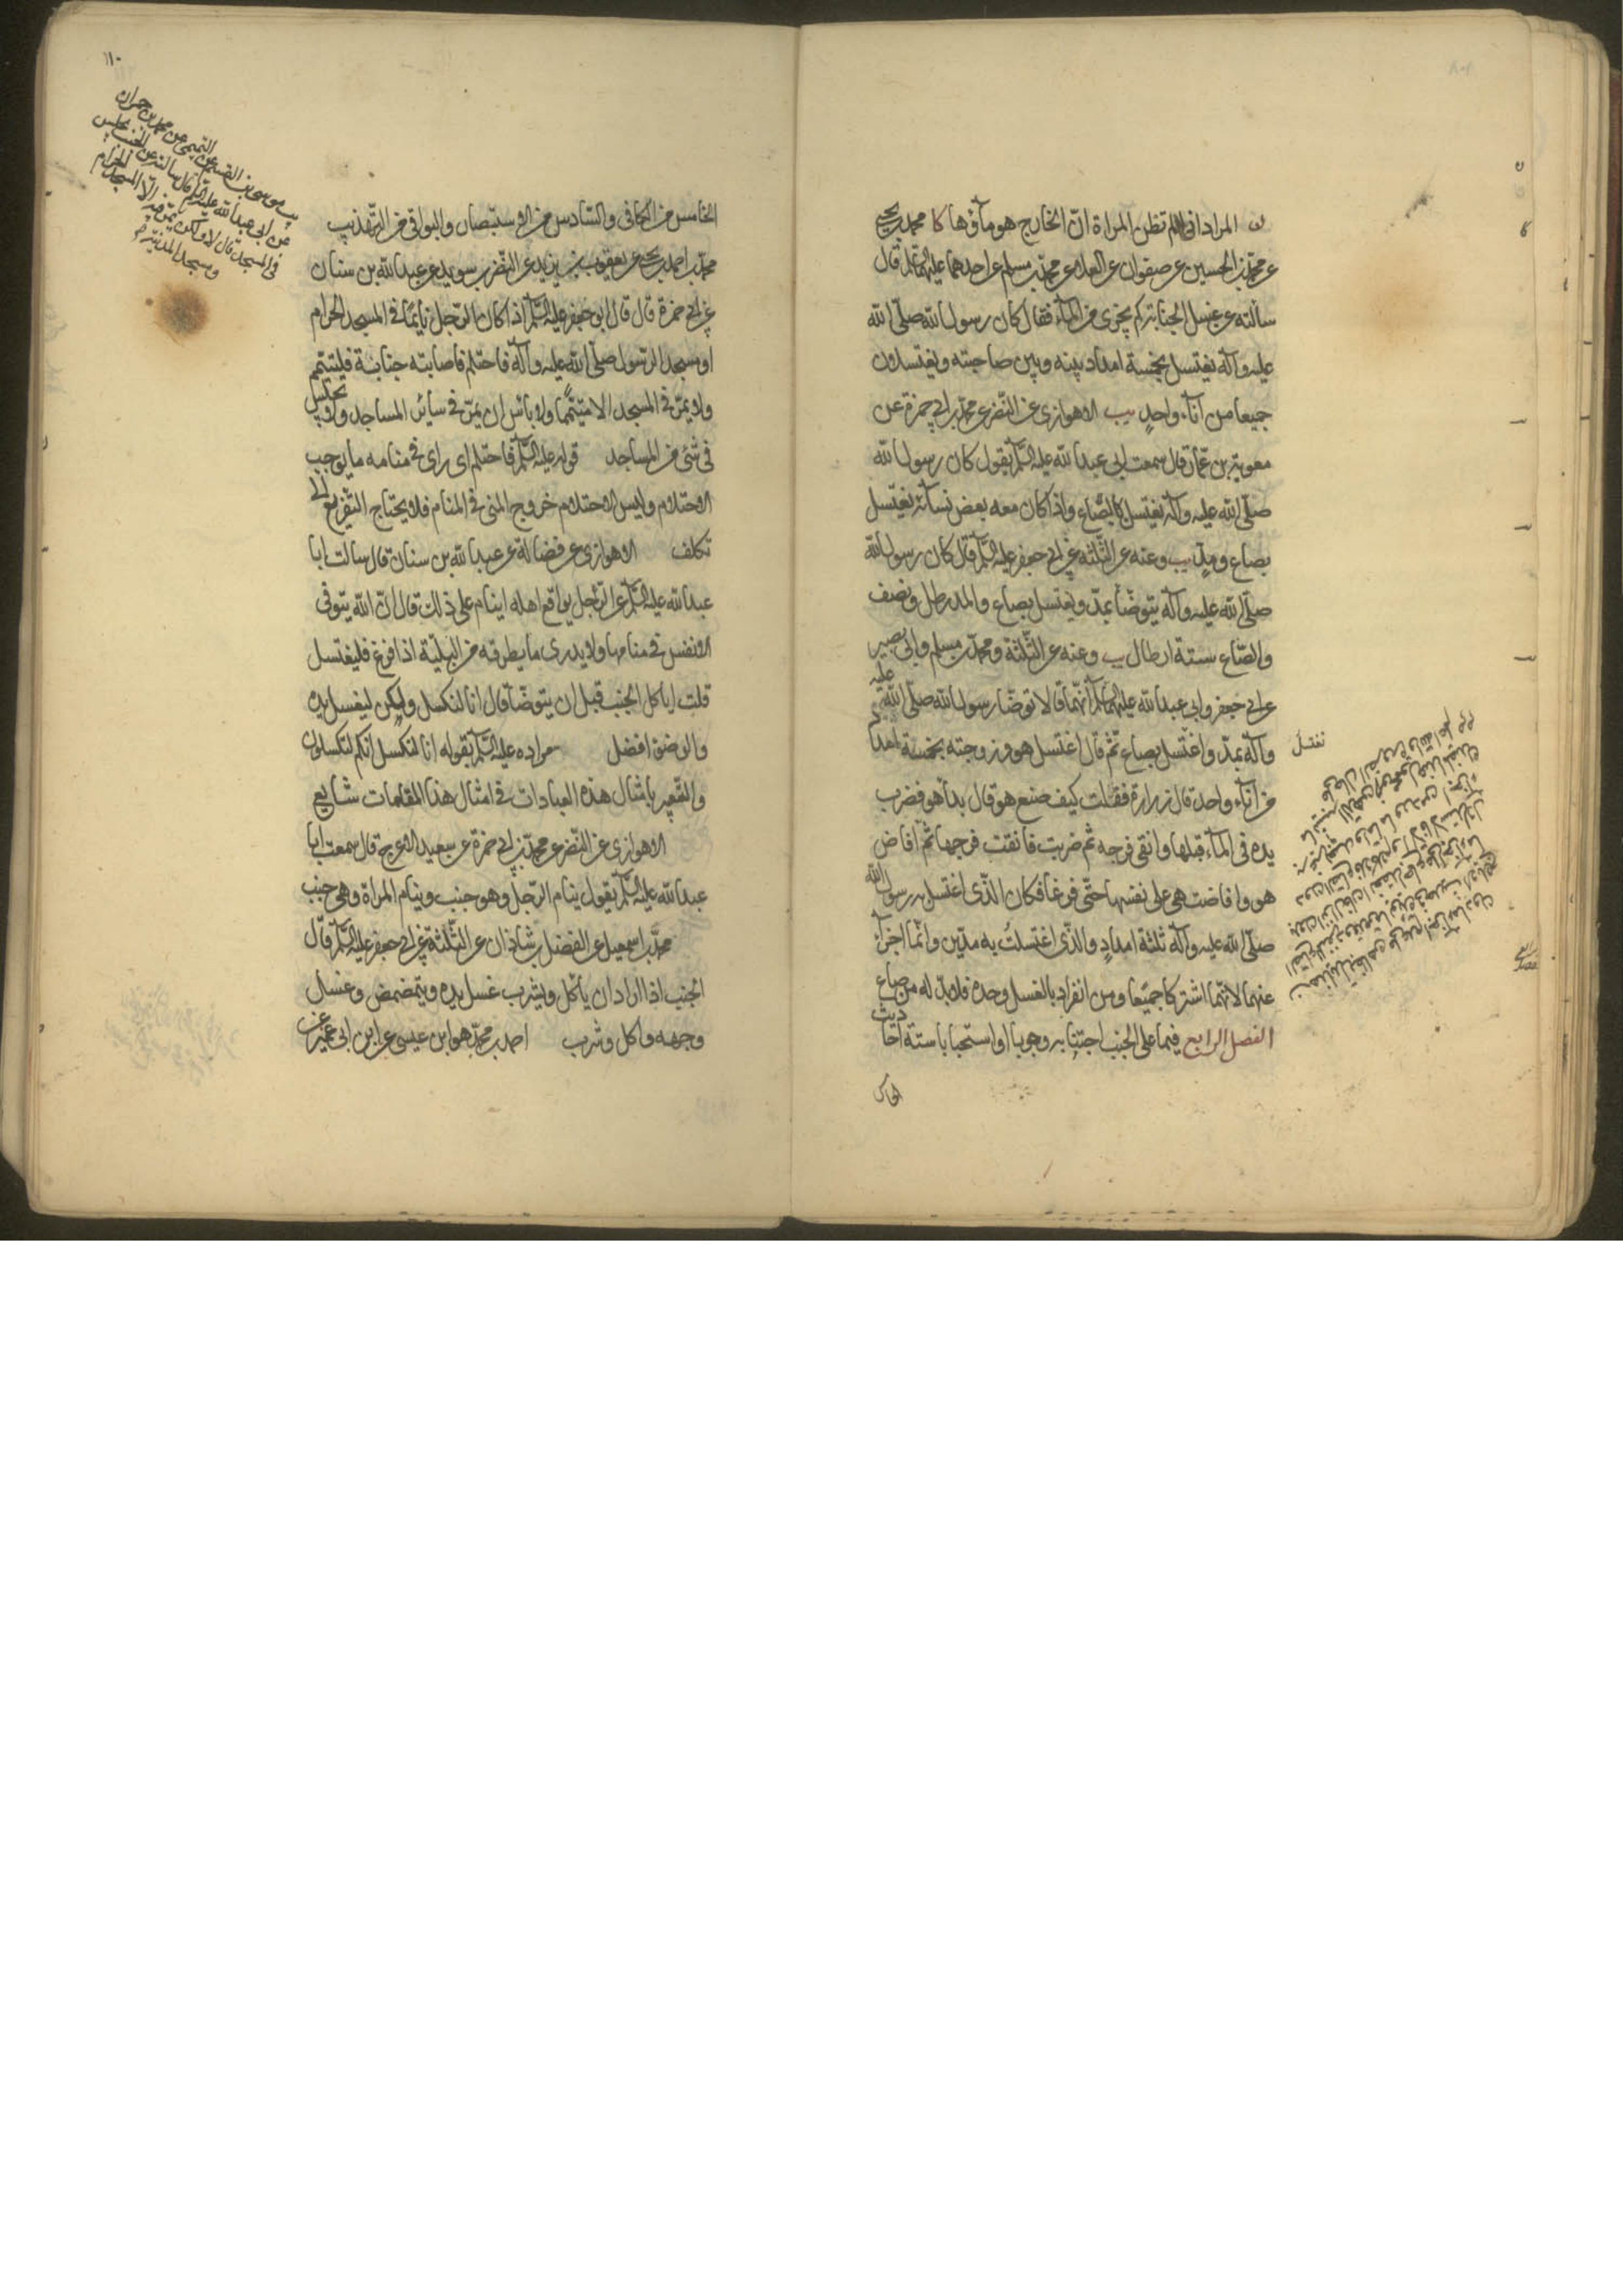 ن المراد انى لم تظن المراة ان الخارج هو ماؤها كا محمد بن يحيى
عن محمد بن الحسين عن صفوان عن العلا عن محمد بن مسلم عن احدهما عليهما السلم قال
سالته عن غسل الجنابة كم يجزى من الماء فقال كان رسول الله صلى الله
عليه وآله يغتسل بخمسة امداد بينه وبين صاحبته ويغتسلان
جميعا من آناء واحد يب الاهوازى عن النضر عن محمد بن ابى حمزة عن
معوية بن عمار قال سمعت ابى عبد الله عليه السلم يقول كان رسول الله
صلى الله عليه وآله يغتسل بالصاع واذا كان معه بعض نسائه يغتسل
بصاع ومد يب وعنه عن الثلثه عن ابى جعفر عليه السلم قال كان رسول الله
صلى الله عليه وآله يتوضأ بمد ويغتسل بصاع والمد رطل ونصف
والصاع ستة ارطال يب وعنه عن الثلثة ومحمد بن مسلم وابى بصير
عن ابى جعفر وابى عبد الله عليهما السلم انهما قالا توضأ رسول الله صلى الله عليه
وآله بمد واغتسل بصاع ثم قال اغتسل هو وزوجته بخمسة امداد
من اناء واحد قال زرارة فقلت كيف صنع هو قال بدأ هو فضرب
يده فى الماء قبلها وانقى فرجه ثم ضربت فانقت فرجها ثم افاض
هو وافاضت هى على نفسها حتى فرغا فكان الذى اغتسل به رسول الله
صلى الله عليه وآله ثلثة امداد والذى اغتسلت به مدين وانما اجزأ
عنهما لانهما اشتركا جميعا ومن انفرد بالغسل وحده فلابد له من صاع
الفصل الرابع فيما على الجنب اجتنابه وجوبا او استحبابا ستة احاديث
نغتسل
الخامس من الكافى والسادس من الاستبصار والبواقى من التهذيب
محمد بن احمد بن يحيى عن يعقوب بن يزيد عن النضر بن سويد عن عبد الله بن سنان
عن ابى حمزة قال قال ابو جعفر عليه السلم اذا كان الرجل نايما فى المسجد الحرام
او مسجد الرسول صلى الله عليه وآله فاحتلم فاصابته جنابة فليتيمم
ولا يمر فى المسجد الا متيمما ولا باس ان يمر فى سائر المساجد ولا يجلس
فى شئ من المساجد قوله عليه السلم فاحتلم اى راى فى منامه ما يوجب
الاحتلام وليس الاحتلام خروج المنى فى المنام فلا يحتاج التفريع الى
تكلف الاهوازى عن فضالة عن عبد الله بن سنان قال سالت ابا
عبد الله عليه السلم عن الرجل يواقع اهله اينام على ذلك قال ان الله يتوفى
الانفس فى منامها ولا يدرى ما يطرقه من البلية اذا فرغ فليغتسل
قلت اياكل الجنب قبل ان يتوضأ قال انا لنكسل ولكن ليغسل يده
والوضوء افضل مراده عليه السلم بقوله انا لنكسل انكم لتكسلون
والتعبير بامثال هذه العبادات فى امثال هذا المقامات شايع
الاهوازى عن النضر عن محمد بن ابى حمزة عن سعيد الاعرج قال سمعت ابا
عبد الله عليه السلم يقول ينام الرجل وهو جنب وينام المراة وهى جنب
محمد بن اسمعيل عن الفضل بن شاذان عن الثلثة عن ابى جعفر عليه السلم قال
الجنب اذا اراد ان ياكل ويشرب غسل يده ويتمضمض وغسل
وجهه واكل وشرب احمد بن محمد هو ابن عيسى عن ابن ابى عمير عن
١١٠
يب موسى بن القسم عن التميمى عن محمد بن حمران
عن ابى عبد الله عليه السلم قال سالته عن الجنب يجلس
فى المسجد قال لا ولكن يمر فيه الا المسجد الحرام
ومسجد المدينة